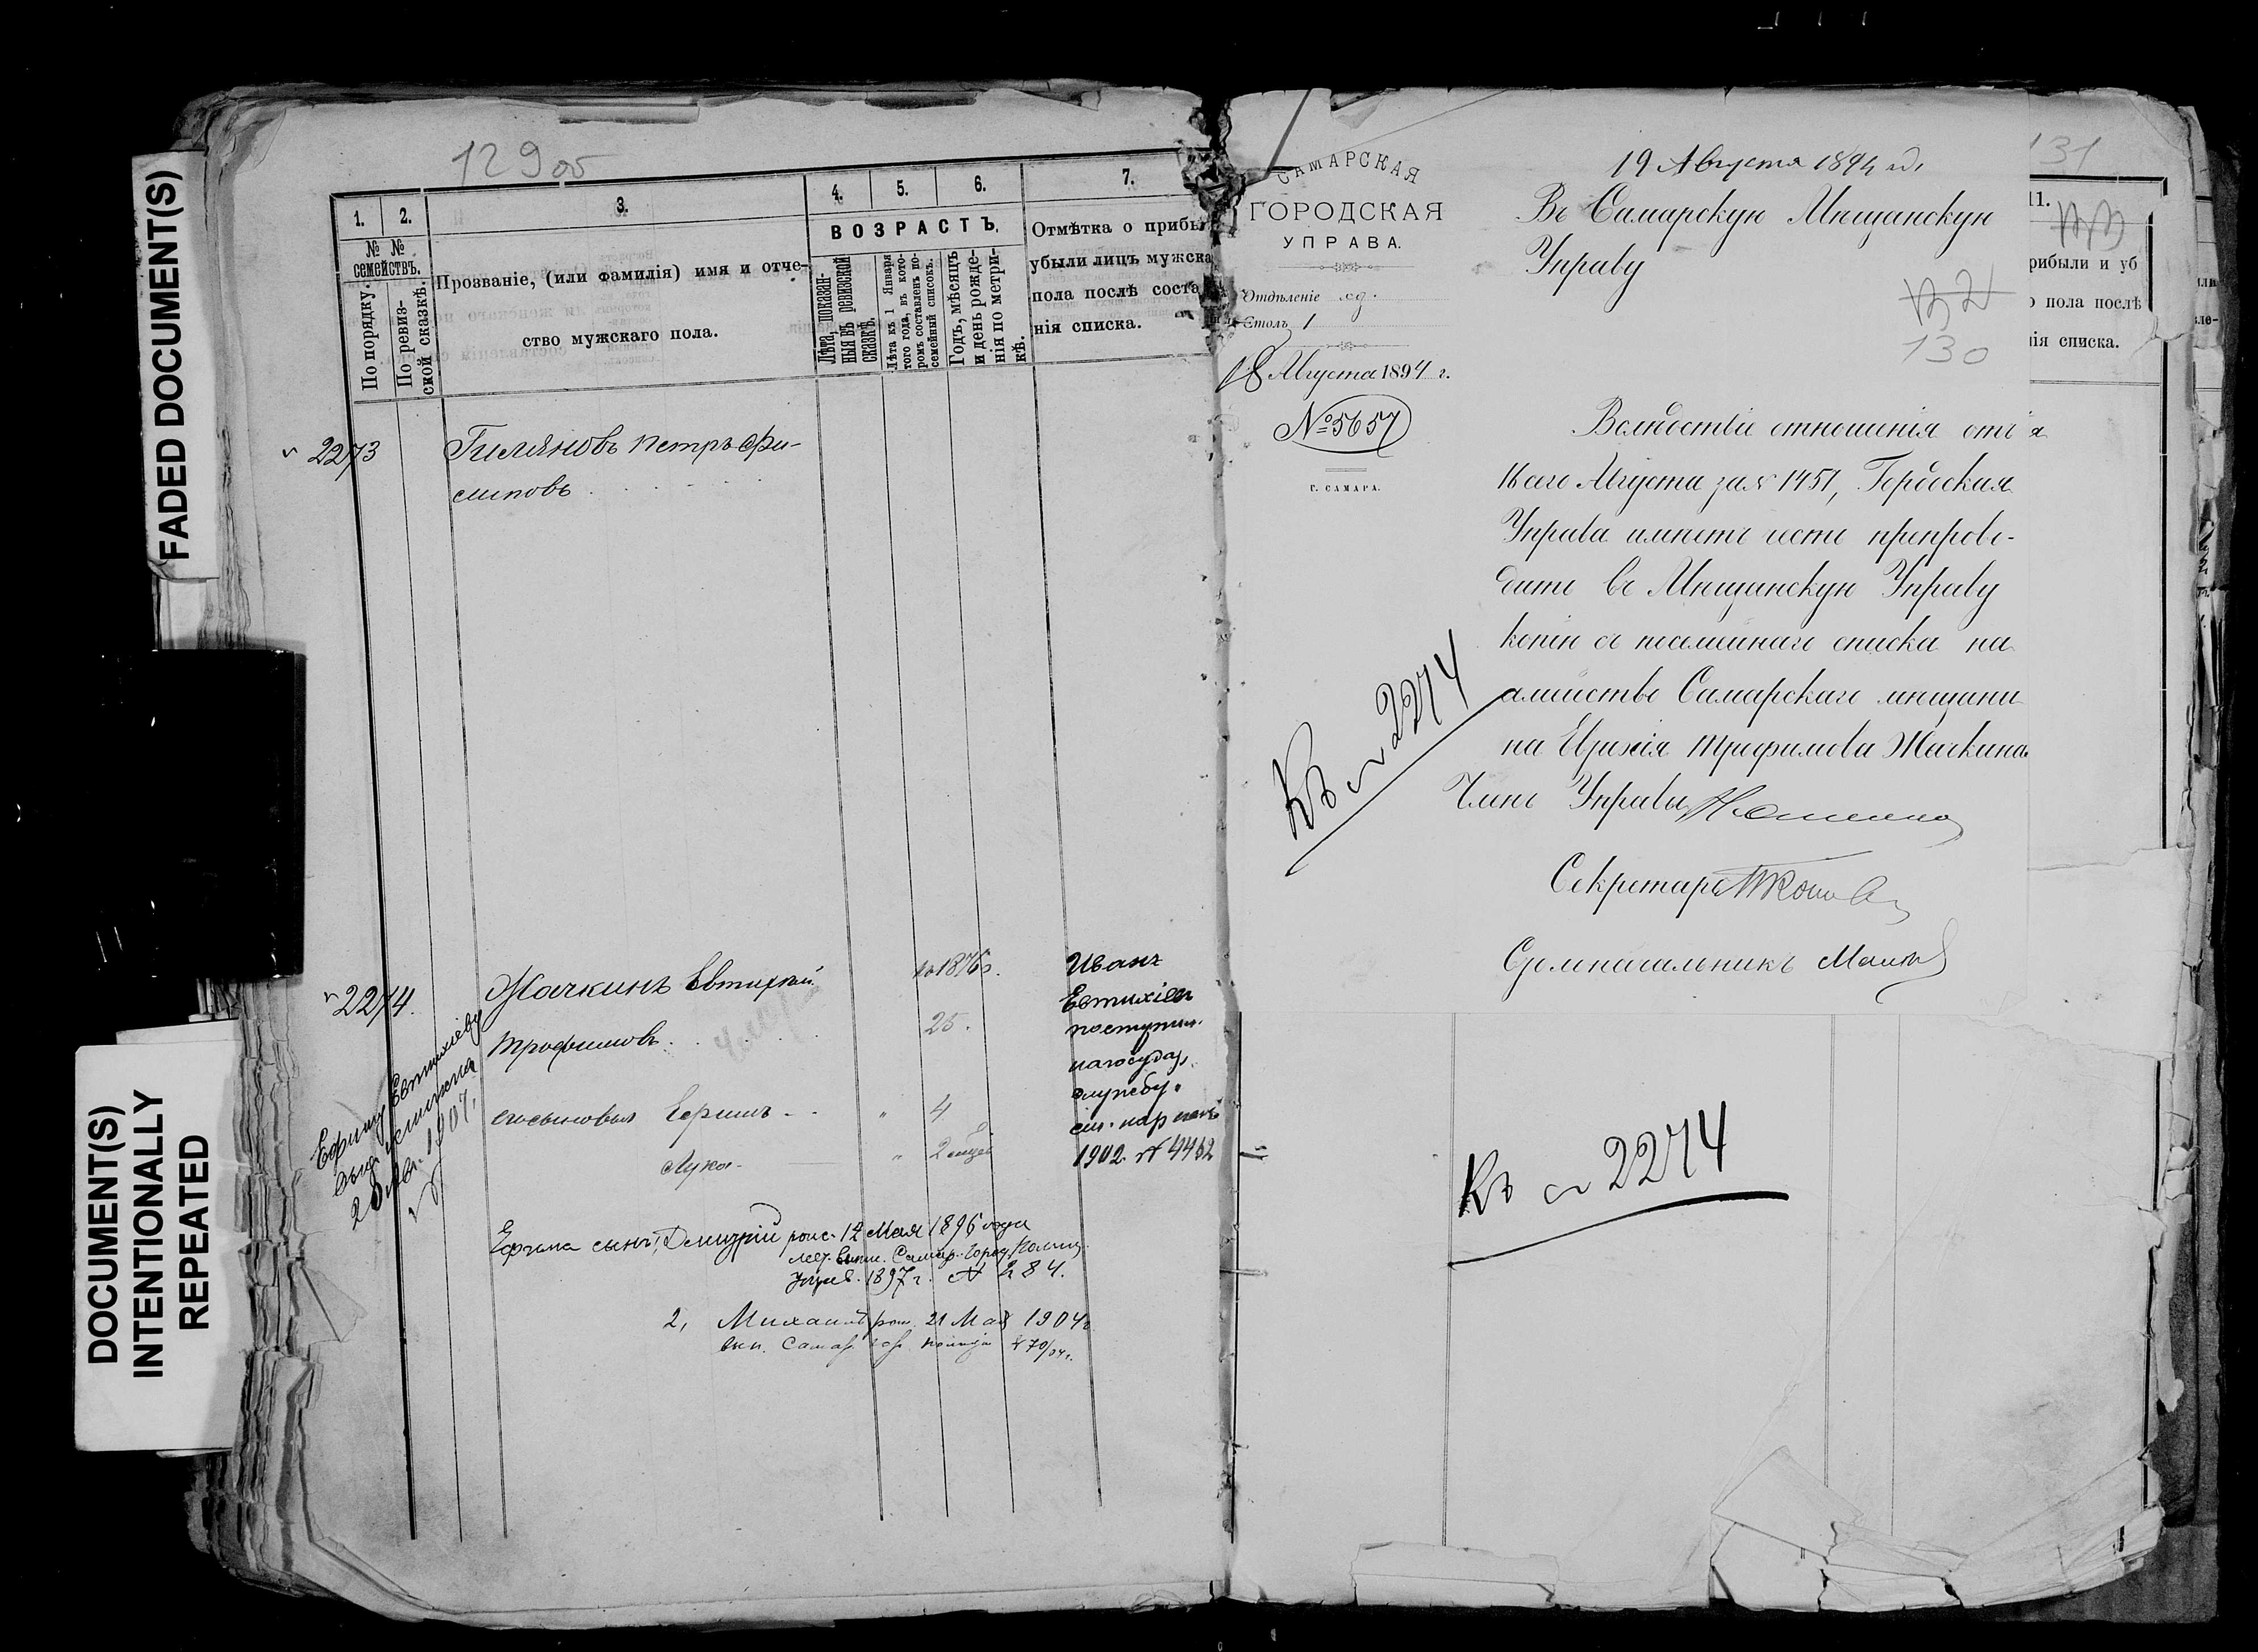 FADED DOCUMENT(S)
DOCUMENT(S)
INTENTIONALLY
REPEATED
129 об
1. 2. 3. 4. 5. 6. 7.
№ №
семействъ.
По порядку.
По ревиз-
ской сказкѣ.
Прозваніе, (или фамилія) имя и отче-
ство мужскаго пола.
ВОЗРАСТЪ.
Лѣта, показан-
ныя въ ревизской
сказкѣ.
Лѣта къ 1 Января
того года, въ кото-
ромъ составленъ по-
семейный списокъ.
Годъ, мѣсяцъ
и день рожде-
нія по метри-
кѣ.
Отмѣтка о прибы
убыли лицъ мужска
пола послѣ соста
нія списка.
2273
Гиляновъ Петръ Фи-
липовъ
2274.
Жачкинъ Евтихій
Трофимовъ
1876
25.
сыновья Ефимъ " 4
Лука " 2
Иванъ
Евтихіев
поступил.
на государ.
службу.
1902. № 4462
Ефиму Евтихіеву
1907.
Ефима сынъ 1, Дмитрій рожд. 12 Мая 1896 года
Самар. Город. Полиц.
Управ. 1897 г. № 284.
2, Михаилъ рож. 21 Мая 1904 г
вкл. Самар. гор. полиціи № 70/04 г.
САМАРСКАЯ
ГОРОДСКАЯ
УПРАВА.
Отдѣленіе
Столъ 1
18 Августа 1894 г.
№ 5657
Г. САМАРА.
19 Августа 1894 г.
Въ Самарскую Мѣщанскую
Управу
132
130
Вслѣдствіе отношенія отъ
16 сего Августа за № 1451, Городская
Управа имѣетъ честь препрово-
дить въ Мѣщанскую Управу
копію съ посемейнаго списка на
семейство Самарскаго мѣщани
на Трофимова Жачкина
Членъ Управы
Секретарь
Столоначальникъ
Къ № 2274
131
11.
133
рибыли и уб
о пола послѣ
нія списка.
Къ № 2274